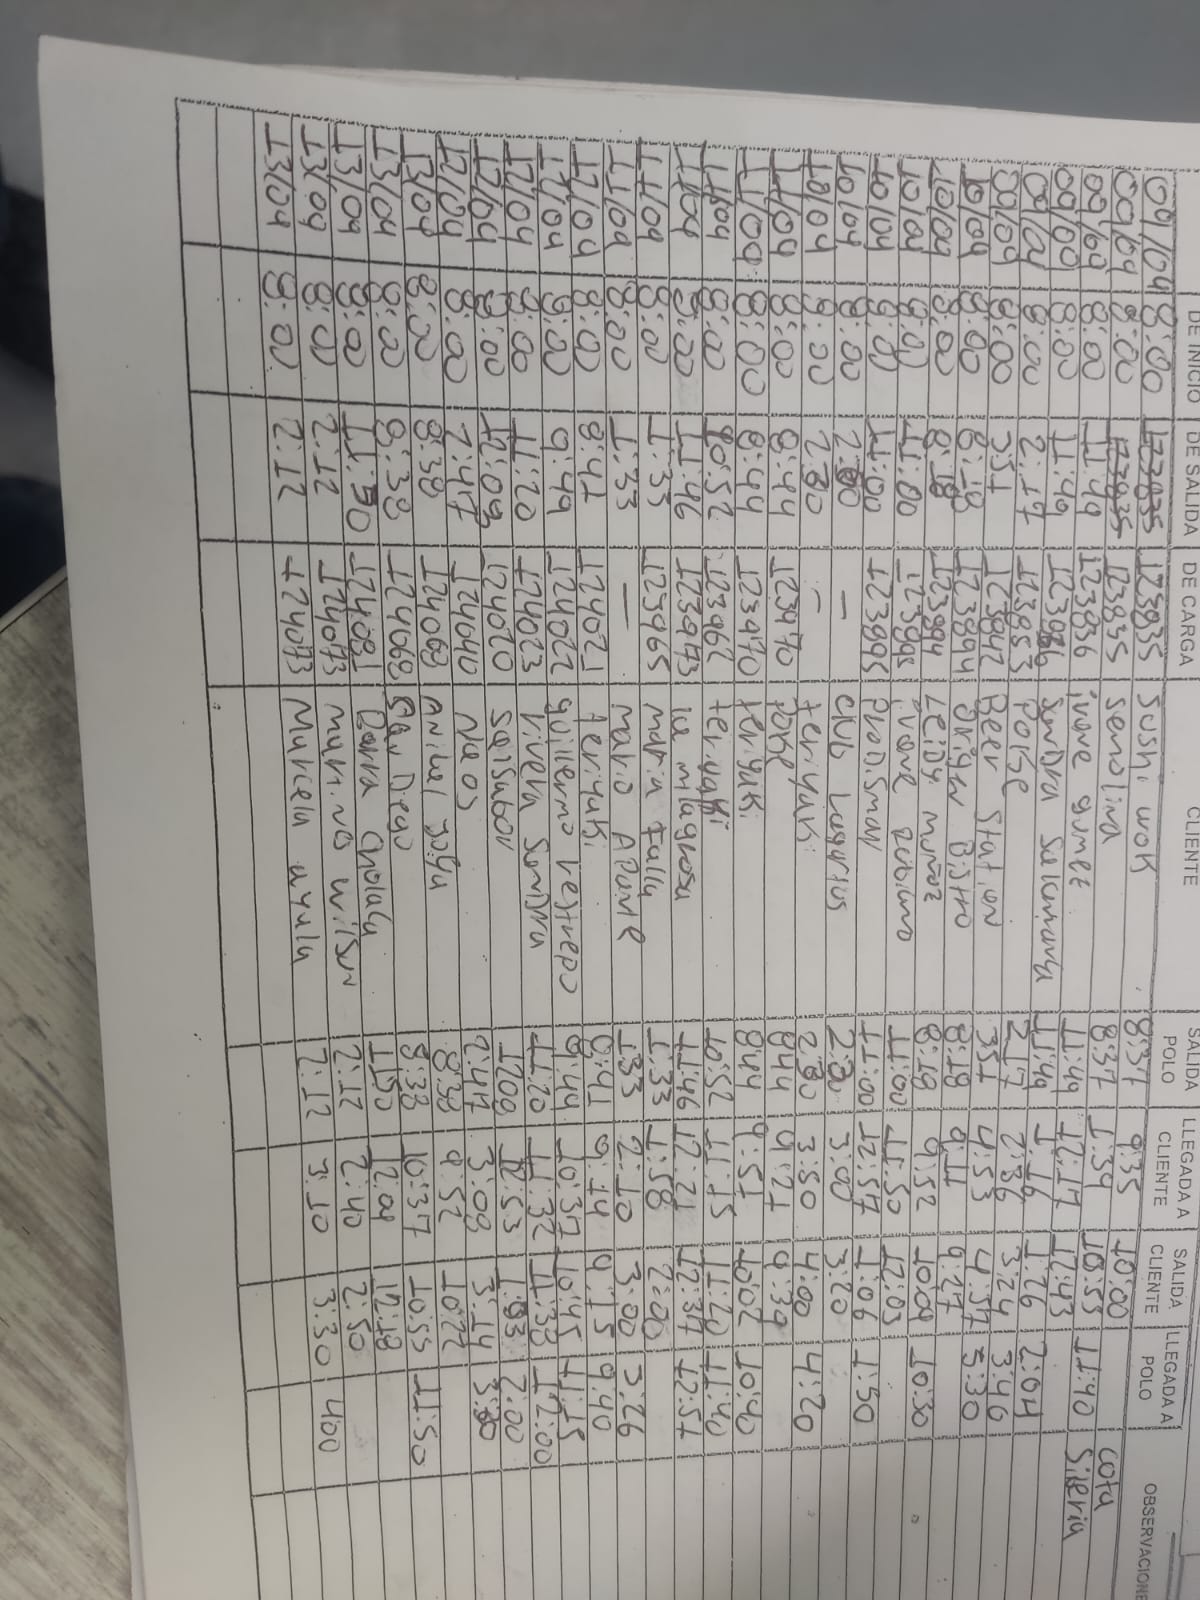 DE INICIO DE SALIDA DE CARGA CLIENTE SALIDA POLO LLEGADA A CLIENTE SALIDA CLIENTE LLEGADA A POLO OBSERVACIONE
09/04 8:00 123835 Sushi wok 8:37 9:35 10:00
09/04 8:00 123835 Semolina 8:37 10:53 11:40 Cota
09/04 8:00 11:49 123836 ivone gumez 11:49 12:17 12:43 Siberia
09/04 8:00 11:49 Sandra 11:49 1:16 1:26 2:04
09/04 8:00 2:17 123853 Poke 2:17 2:36 3:24 3:46
09/04 8:00 351 Beer Station 351 4:53 4:57 5:30
10/04 8:00 8:18 123894 Origen Bistro 8:18 9:11 9:27
10/04 8:00 8:18 123894 Leidy muñoz 8:18 9:52 10:09 10:30
10/04 8:00 11:00 123895 ivone 11:00 11:50 12:03
10/04 8:00 11:00 123895 11:00 12:57 1:06 1:50
10/04 8:00 — club 3:00 3:20
10/04 8:00 — teriyaki 4:00 4:20
11/04 8:00 8:44 123970 Poke 844 9:21 9:39
11/04 8:00 8:44 123970 teriyaki 8:44 9:51 10:02 10:40
11/04 8:00 10:52 123962 teriyaki 10:52 11:15 11:20 11:40
11/04 8:00 11:46 123973 la milagrosa 11:46 12:21 12:37 12:51
11/04 8:00 1:33 123965 maria 1:33 1:58 2:00
11/04 8:00 1:33 — mario Aponte 1:33 2:10 3:00 3:26
12/04 8:00 8:41 124021 teriyaki 8:41 9:14 9:15 9:40
12/04 124022 guillermo restrepo 10:37 10:45 11:15
12/04 8:00 11:20 124023 11:20 11:32 11:38 12:00
12/04 8:00 12:09 124020 1209 12:53 2:00
12/04 8:00 2:47 124040 Naos 2:47 3:09 3:14
13/04 8:00 8:38 124068 Anibal 8:38 9:52 10:22
13/04 8:00 8:38 124068 8:38 10:37 10:55 11:50
13/04 8:00 11:50 1150 12:09 12:18
13/04 8:00 2:12 124073 wilson 2:12 2:40 2:50
13/04 8:00 2:12 124073 Maricela ayala 2:12 3:10 3:30 400